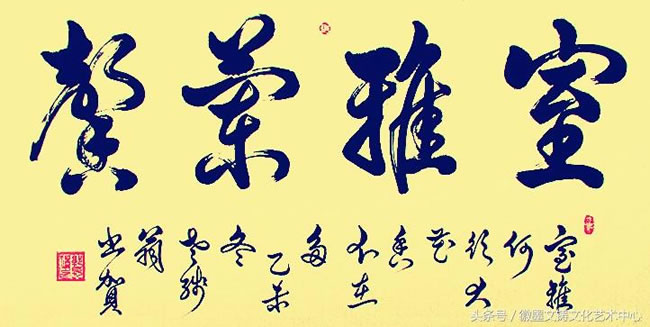 室雅蘭馨
室雅
何
須大
花
香
不在
多
乙未
冬
翁
书賀
头条号／徽墨文铸文化艺术中心